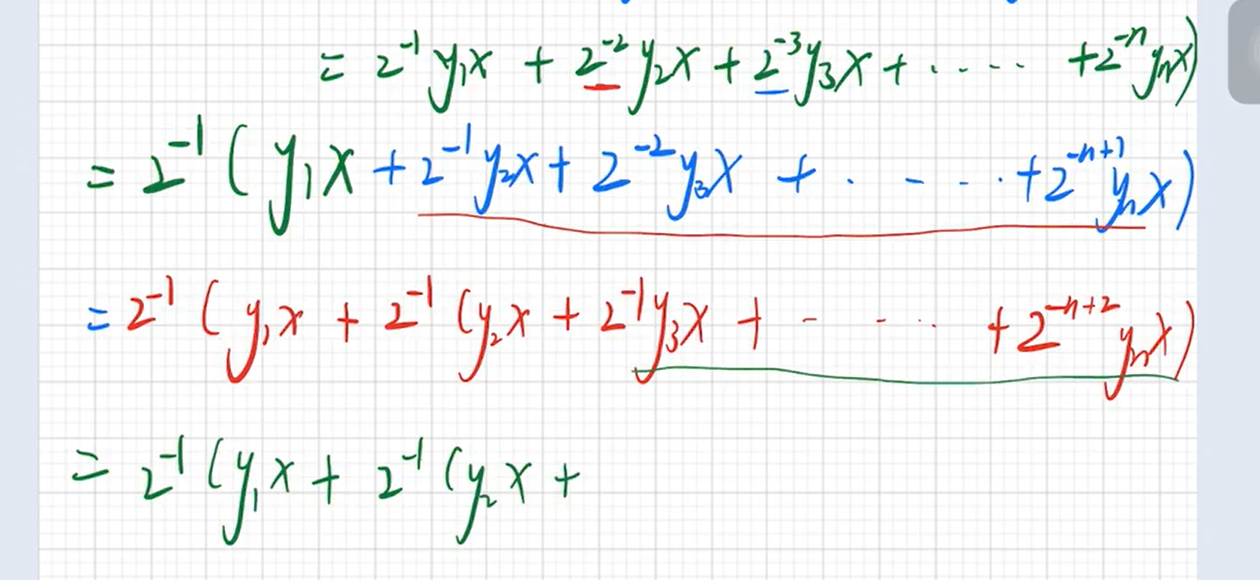 = 2⁻¹y₁x + 2⁻²y₂x + 2⁻³y₃x + ..... +2⁻ⁿyₙx)
= 2⁻¹(y₁x + 2⁻¹y₂x + 2⁻²y₃x + . - - .. +2⁻ⁿ⁺¹yₙx)
= 2⁻¹(y₁x + 2⁻¹(y₂x + 2⁻¹y₃x + - - .. +2⁻ⁿ⁺²yₙx)
= 2⁻¹(y₁x + 2⁻¹(y₂x +